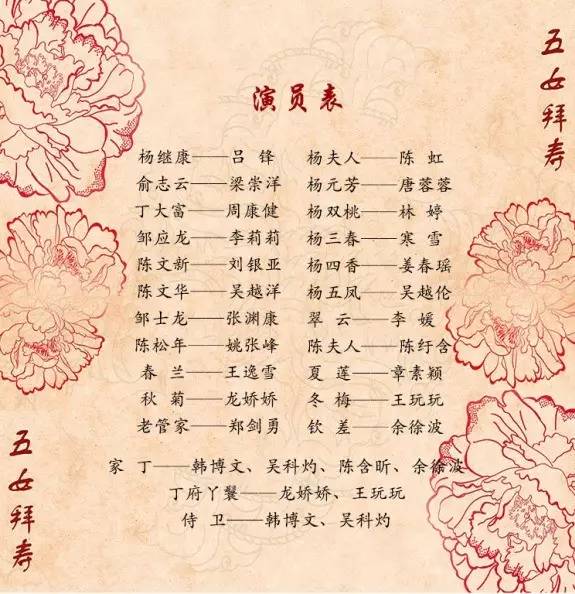 五女拜寿
演员表
杨继康——吕 锋 杨夫人——陈 虹
俞志云——梁崇洋 杨元芳——唐蓉蓉
丁大富——周康健 杨双桃——林 婷
邹应龙——李莉莉 杨三春——寒 雪
陈文新——刘银亚 杨四香——姜春瑶
陈文华——吴越洋 杨五凤——吴越伦
邹士龙——张渊康 翠 云——李 媛
陈松年——姚张峰 陈夫人——陈纡含
春 兰——王逸雪 夏 莲——章素颖
秋 菊——龙娇娇 冬 梅——王玩玩
老管家——郑剑勇 钦 差——余徐波
家 丁——韩博文、吴科灼、陈含昕、余徐波
丁府丫鬟——龙娇娇、王玩玩
侍 卫——韩博文、吴科灼
五女拜寿